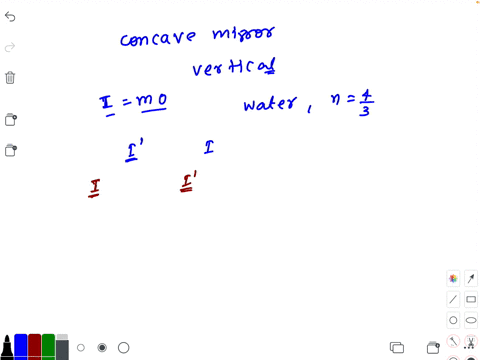 concave mirror
vertical
I = mO water, n = 4/3
I' I
I I'